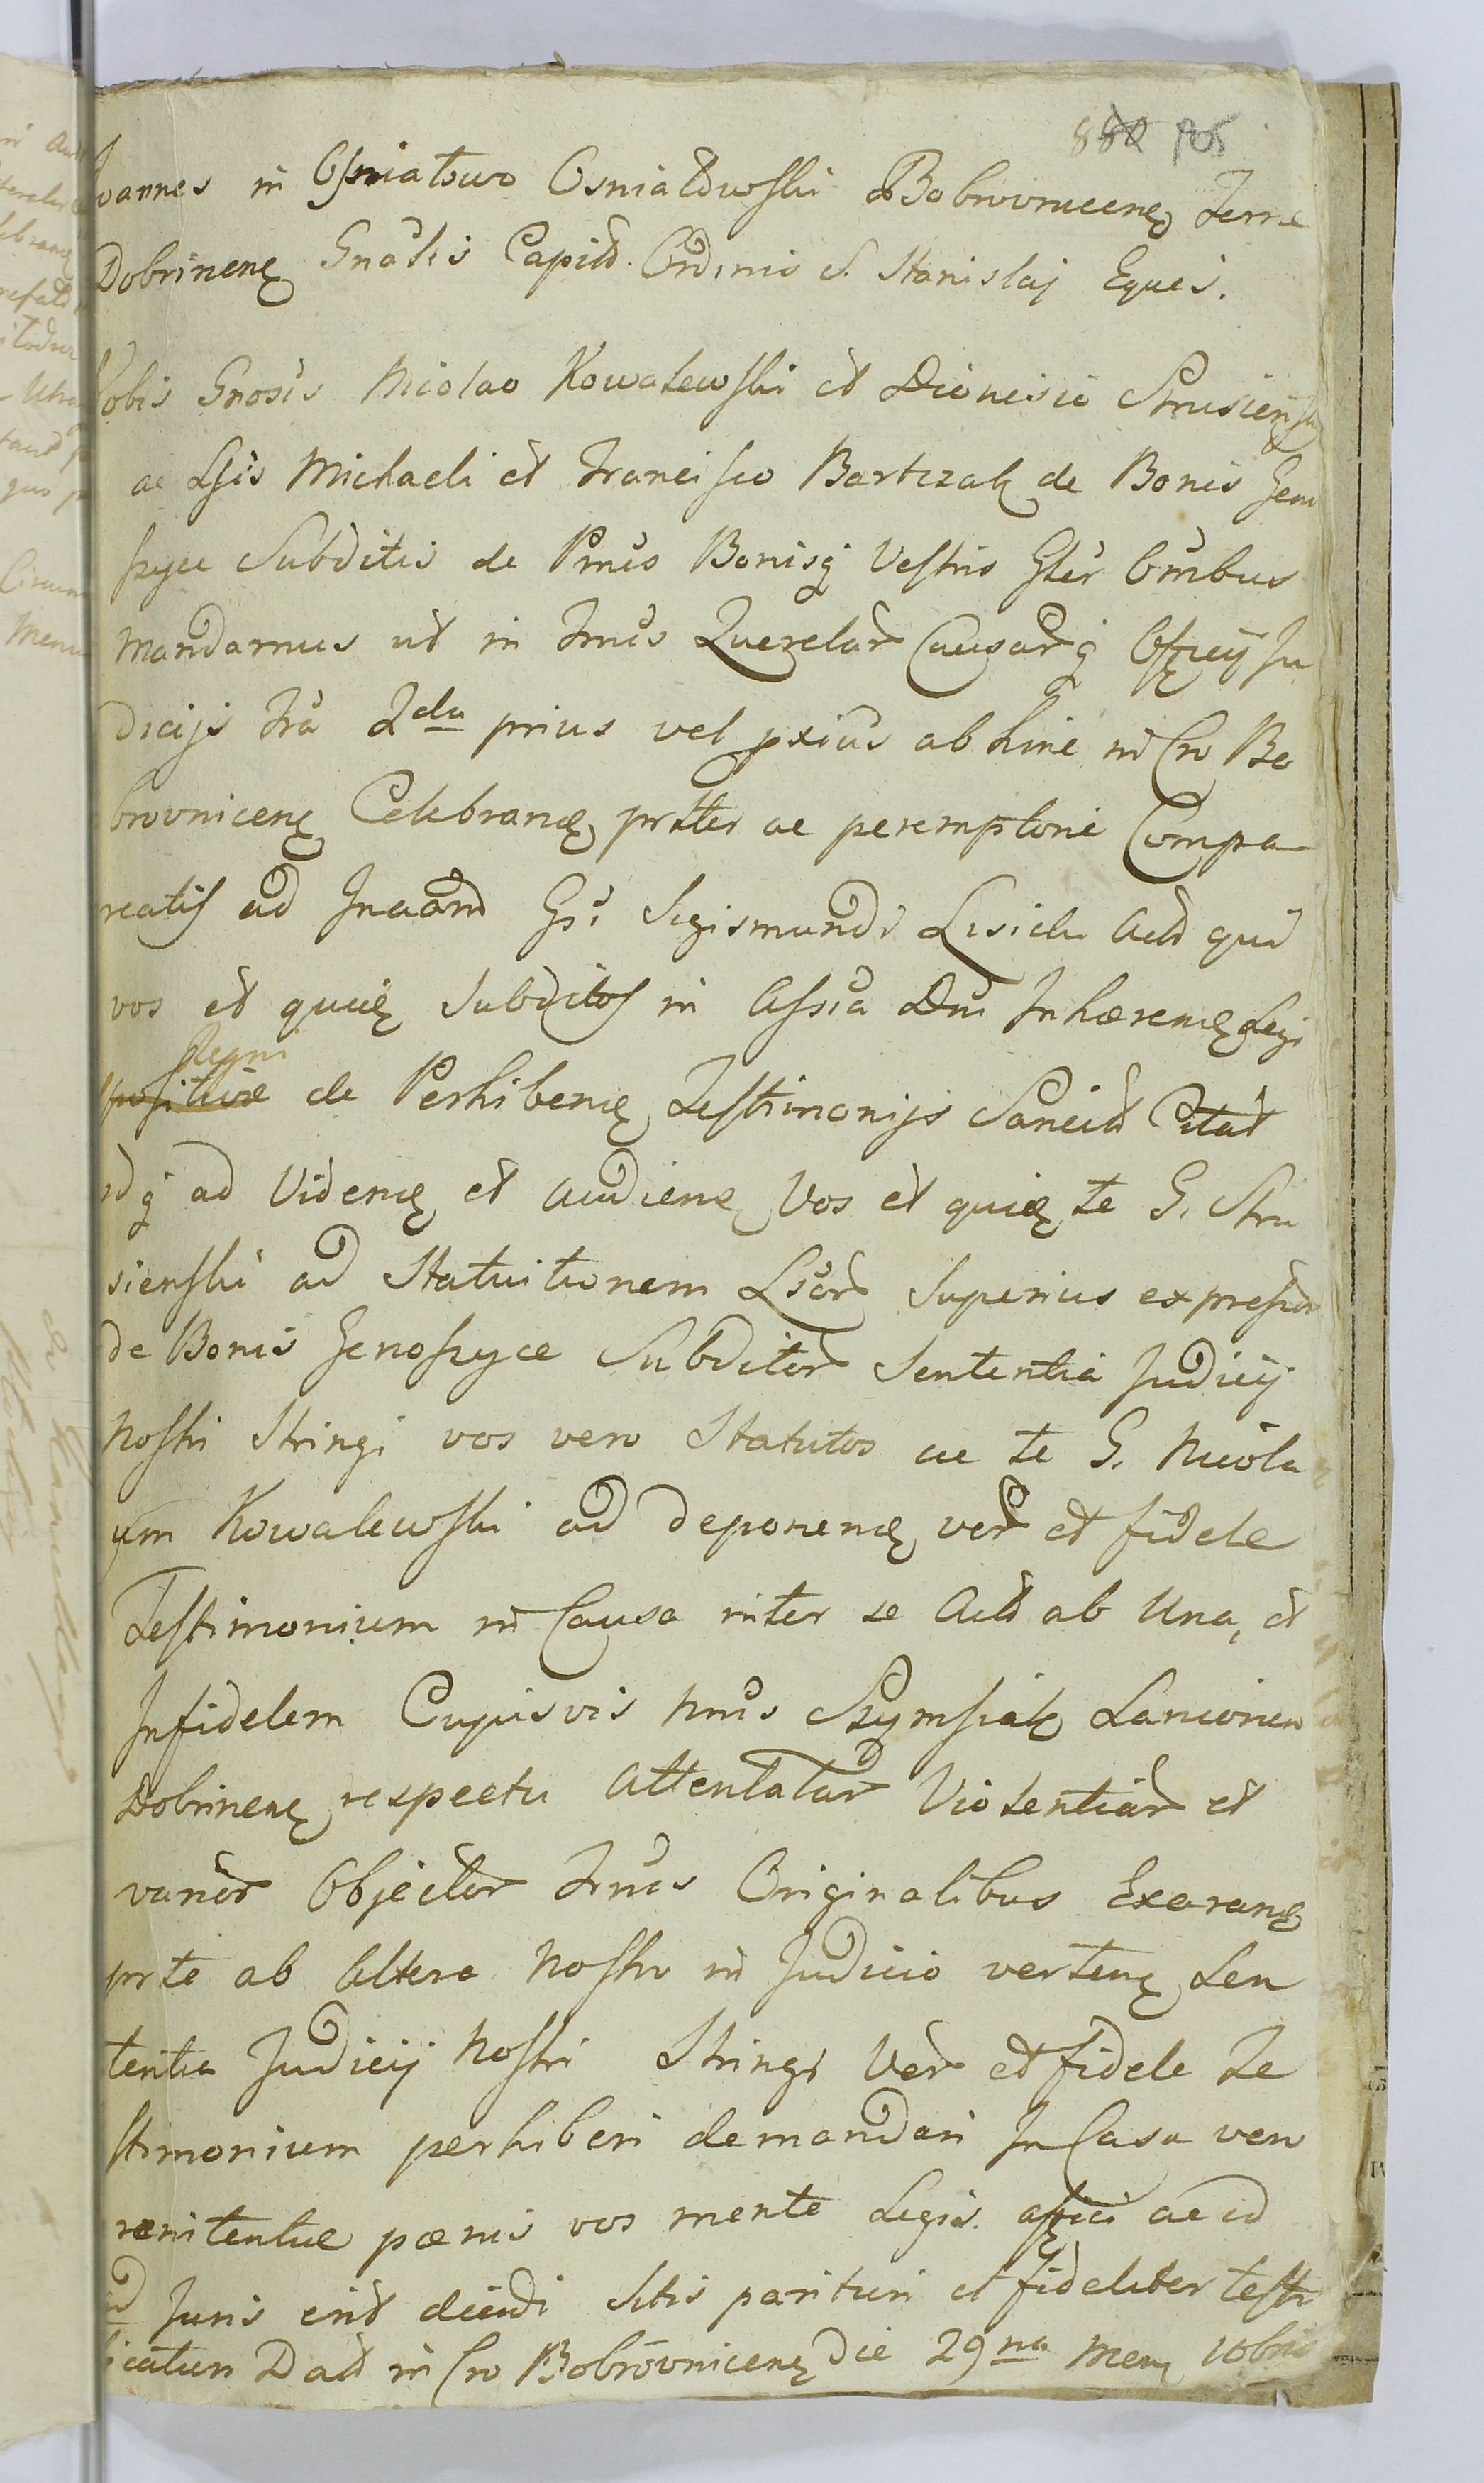 Joannes in Osniałowo Osniałowski Bobrovnicen Terre
Dobrinen Gnalis Capit. Ordinis S. Stanislaj Eques.
Vobis Gnosis Nicolao Kowalewski et Dionisio Strusien
ac Lgis Michaeli et Francisco Bartczak de Bonis Geno
szyce Subditis de Pmis Bonisq Vestris Gler Omibus
Mandamus ut in Trmis Querelar Causarq Officij Ju
dicijs Fra 2da prius vel pxius abhinc in Cro Bo
brovnicen Celebran prtter ac peremptorie Compa
reatis ad Jnaam Gsi Sigismundi Lisicki Act qui
vos et quие Subditos in Assia Dni Jnhæren Legi
Regni
de Perhiben Testimonijs Sancit Citat
idq ad Viden et audien Vos et quie te G. Stru
sienski ad Statuitionem Lsor Superius expressor
de Bonis Genoszyce Subditor Sententia Judicij
Nostri Stringi vos vero Statutos ac te G. Nicola
um Kowalewski ad deponen ver et fidele
Testimonium in Causa inter se Act ab Una, et
Jnfidelem Cujusvis Nmis Szymsiak Lanionem
Dobrinen respectu attentatar Violentiar et
varior Objector Trmis Originalibus Exaran
prte ab Altera Nostro in Judicio verten Sen
tentia Judicij Nostri Stringi Ver et fidele Te
stimonium perhiberi demandari Jn Casu vero
renitentiæ pænis vos mente Legis affici ac id
Juris erit dicidi Sitis parituri et fideliter testi
ficaturi Dat in Cro Bobrovnicen die 29na Men 10bris